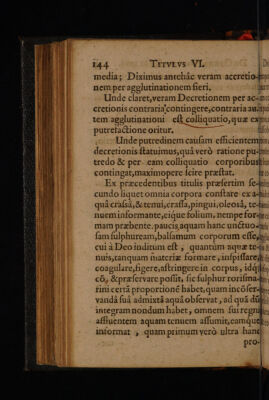 144 TITVLVS VI.
media; Diximus antehàc veram accretio-
nem per agglutinationem fieri.
Unde claret, veram Decretionem per ac-
cretionis contraria contingere, contraria au-
tem agglutinationi est colliquatio, quæ ex
putrefactione oritur.
Unde putredinem causam efficientem
decretionis statuimus, quâ verò ratione pu-
tredo & per eam colliquatio corporibus
contingat, maximopere scire præstat.
Ex præcedentibus titulis præsertim se-
cundo liquet omnia corpora constare ex a-
quâ crassâ, & tenui, crassa, pingui, oleosâ, te-
nuem informante, eique folium, nempe for-
mam præbente. paucis, aquam hanc unctuo-
sam sulphuream, balsamum corporum esse,
cui à Deo inditum est, quantùm aquæ te-
nuis, tanquam materiæ formare, inspissare,
coagulare, figere, astringere in corpus, idq;
cō, & præservare possit, sic sulphur rorisma-
rini certā proportionē habet, quam incōser-
vandâ suâ admixtâ aquâ observat, ad quā dū
integram nondum habet, omnem sui regni
affluentem aquam tenuem assumit, eamque
informat, quam primum verò ultra hanc
pro-